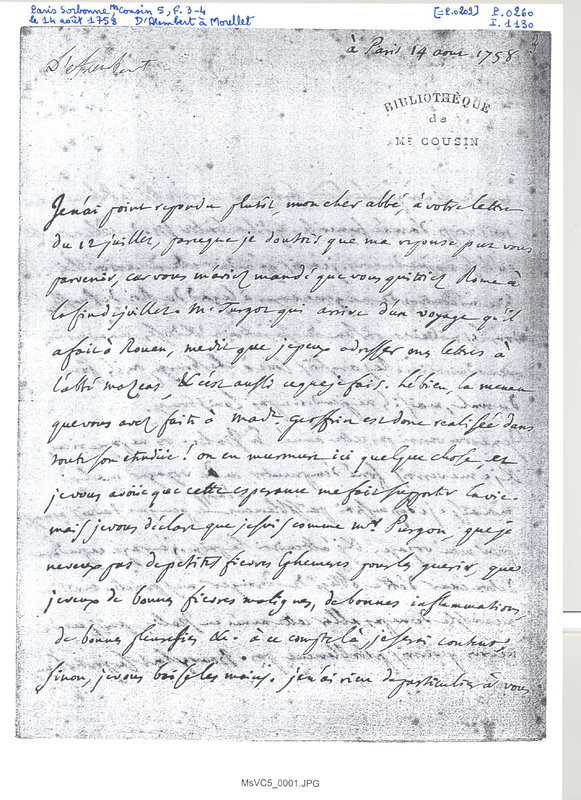 Paris Sorbonne, Ms Cousin 5, f. 3-4
le 14 août 1758 D'Alembert à Morellet
P.0260
I.1130
à Paris 14 aout 1758
D'Alembert
BIBLIOTHÈQUE
de
Mr COUSIN
Je n'ai point repondu plutôt, mon cher abbé, à votre lettre
du 12 juillet, parceque je doutois que ma reponse put vous
parvenir, car vous m'aviez mandé que vous quittiez Rome à
la fin de juillet. Mr Turgot qui arrive d'un voyage qu'il
a fait à Rouen, me dit que je peux adresser mes lettres à
l'abbé mazeas, & c'est aussi ce que je fais. hé bien, la menace
que vous avez faite à Made. Geoffrin est donc realisée dans
toute son etendue! on en murmure ici quelque chose, et
je vous avoue que cette esperance me fait supporter la vie.
mais je vous déclare que je suis comme Mr Purgon, que je
ne veux pas de petites fievres ephemeres pour les guerir, que
je veux de bonnes fievres malignes, de bonnes inflammations,
de bonnes pleuresies &c. à ce compte là, je serai content;
sinon, je vous baise les mains. je n'ai rien de particulier à vous
MsVC5_0001.JPG